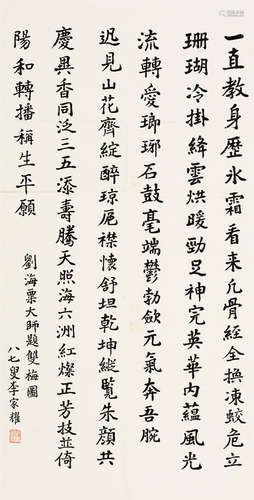 一直教身歷氷霜看来凡骨経全换凍蛟危立
珊瑚冷掛絳雲烘暖勁足神完英華内蘊風光
流轉愛瑯琊石鼓毫端鬱勃歛元氣奔吾腕
迟見山花齊綻醉琼巵襟懷舒坦乾坤縱覧朱顔共
慶異香同泛三五添壽騰天照海六洲紅燦正芳技並倚
陽和轉播稱生平願
劉海粟大师題雙梅圖
八七叟李家耀